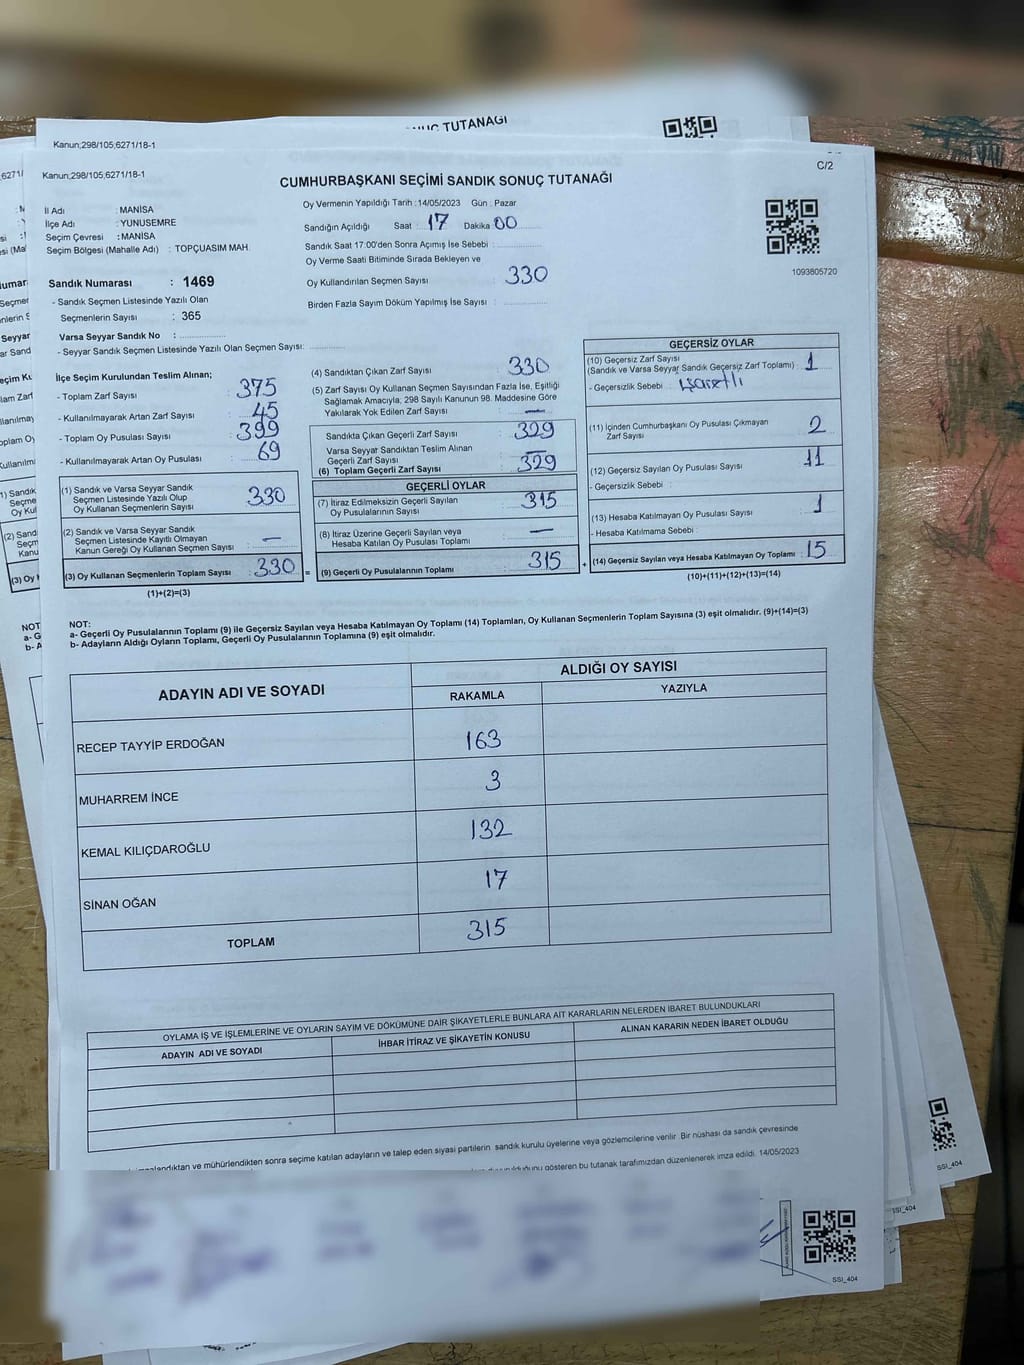 NUÇ TUTANAĞI
Kanun;298/105;6271/18-1
Kanun;298/105;6271/18-1
C/2
CUMHURBAŞKANI SEÇİMİ SANDIK SONUÇ TUTANAĞI
İl Adı : MANİSA
İlçe Adı : YUNUSEMRE
Seçim Çevresi : MANİSA
Seçim Bölgesi (Mahalle Adı) : TOPÇUASIM MAH.
Oy Vermenin Yapıldığı Tarih : 14/05/2023 Gün : Pazar
Sandığın Açıldığı Saat : 17 Dakika 00
Sandık Saat 17:00'den Sonra Açımış İse Sebebi :
Oy Verme Saati Bitiminde Sırada Bekleyen ve
Oy Kullandırılan Seçmen Sayısı : 330
Birden Fazla Sayım Döküm Yapılmış İse Sayısı :
1093805720
Sandık Numarası : 1469
- Sandık Seçmen Listesinde Yazılı Olan
Seçmenlerin Sayısı : 365
Varsa Seyyar Sandık No :
- Seyyar Sandık Seçmen Listesinde Yazılı Olan Seçmen Sayısı:
İlçe Seçim Kurulundan Teslim Alınan;
- Toplam Zarf Sayısı : 375
- Kullanılmayarak Artan Zarf Sayısı : 45
- Toplam Oy Pusulası Sayısı : 399
- Kullanılmayarak Artan Oy Pusulası : 69
(1) Sandık ve Varsa Seyyar Sandık
Seçmen Listesinde Yazılı Olup
Oy Kullanan Seçmenlerin Sayısı : 330
(2) Sandık ve Varsa Seyyar Sandık
Seçmen Listesinde Kayıtlı Olmayan
Kanun Gereği Oy Kullanan Seçmen Sayısı : —
(3) Oy Kullanan Seçmenlerin Toplam Sayısı : 330
(1)+(2)=(3)
(4) Sandıktan Çıkan Zarf Sayısı : 330
(5) Zarf Sayısı Oy Kullanan Seçmen Sayısından Fazla İse, Eşitliği
Sağlamak Amacıyla; 298 Sayılı Kanunun 98. Maddesine Göre
Yakılarak Yok Edilen Zarf Sayısı : —
Sandıkta Çıkan Geçerli Zarf Sayısı : 329
Varsa Seyyar Sandıktan Teslim Alınan
Geçerli Zarf Sayısı : —
(6) Toplam Geçerli Zarf Sayısı : 329
GEÇERLİ OYLAR
(7) İtiraz Edilmeksizin Geçerli Sayılan
Oy Pusulalarının Sayısı : 315
(8) İtiraz Üzerine Geçerli Sayılan veya
Hesaba Katılan Oy Pusulası Toplamı : —
= (9) Geçerli Oy Pusulalarının Toplamı : 315
GEÇERSİZ OYLAR
(10) Geçersiz Zarf Sayısı
(Sandık ve Varsa Seyyar Sandık Geçersiz Zarf Toplamı) : 1
- Geçersizlik Sebebi : işaretli
(11) İçinden Cumhurbaşkanı Oy Pusulası Çıkmayan
Zarf Sayısı : 2
(12) Geçersiz Sayılan Oy Pusulası Sayısı : 11
- Geçersizlik Sebebi :
(13) Hesaba Katılmayan Oy Pusulası Sayısı : 1
- Hesaba Katılmama Sebebi :
+ (14) Geçersiz Sayılan veya Hesaba Katılmayan Oy Toplamı : 15
(10)+(11)+(12)+(13)=(14)
NOT:
a- Geçerli Oy Pusulalarının Toplamı (9) ile Geçersiz Sayılan veya Hesaba Katılmayan Oy Toplamı (14) Toplamları, Oy Kullanan Seçmenlerin Toplam Sayısına (3) eşit olmalıdır. (9)+(14)=(3)
b- Adayların Aldığı Oyların Toplamı, Geçerli Oy Pusulalarının Toplamına (9) eşit olmalıdır.
ADAYIN ADI VE SOYADI
ALDIĞI OY SAYISI
RAKAMLA YAZIYLA
RECEP TAYYİP ERDOĞAN 163
MUHARREM İNCE 3
KEMAL KILIÇDAROĞLU 132
SİNAN OĞAN 17
TOPLAM 315
OYLAMA İŞ VE İŞLEMLERİNE VE OYLARIN SAYIM VE DÖKÜMÜNE DAİR ŞİKAYETLERLE BUNLARA AİT KARARLARIN NELERDEN İBARET BULUNDUKLARI
ADAYIN ADI VE SOYADI İHBAR İTİRAZ VE ŞİKAYETİN KONUSU ALINAN KARARIN NEDEN İBARET OLDUĞU
ve mühürlendikten sonra seçime katılan adayların ve talep eden siyasi partilerin sandık kurulu üyelerine veya gözlemcilerine verilir. Bir nüshası da sandık çevresinde
gösteren bu tutanak tarafımızdan düzenlenerek imza edildi. 14/05/2023
SSI_404
SSI_404
SSI_404